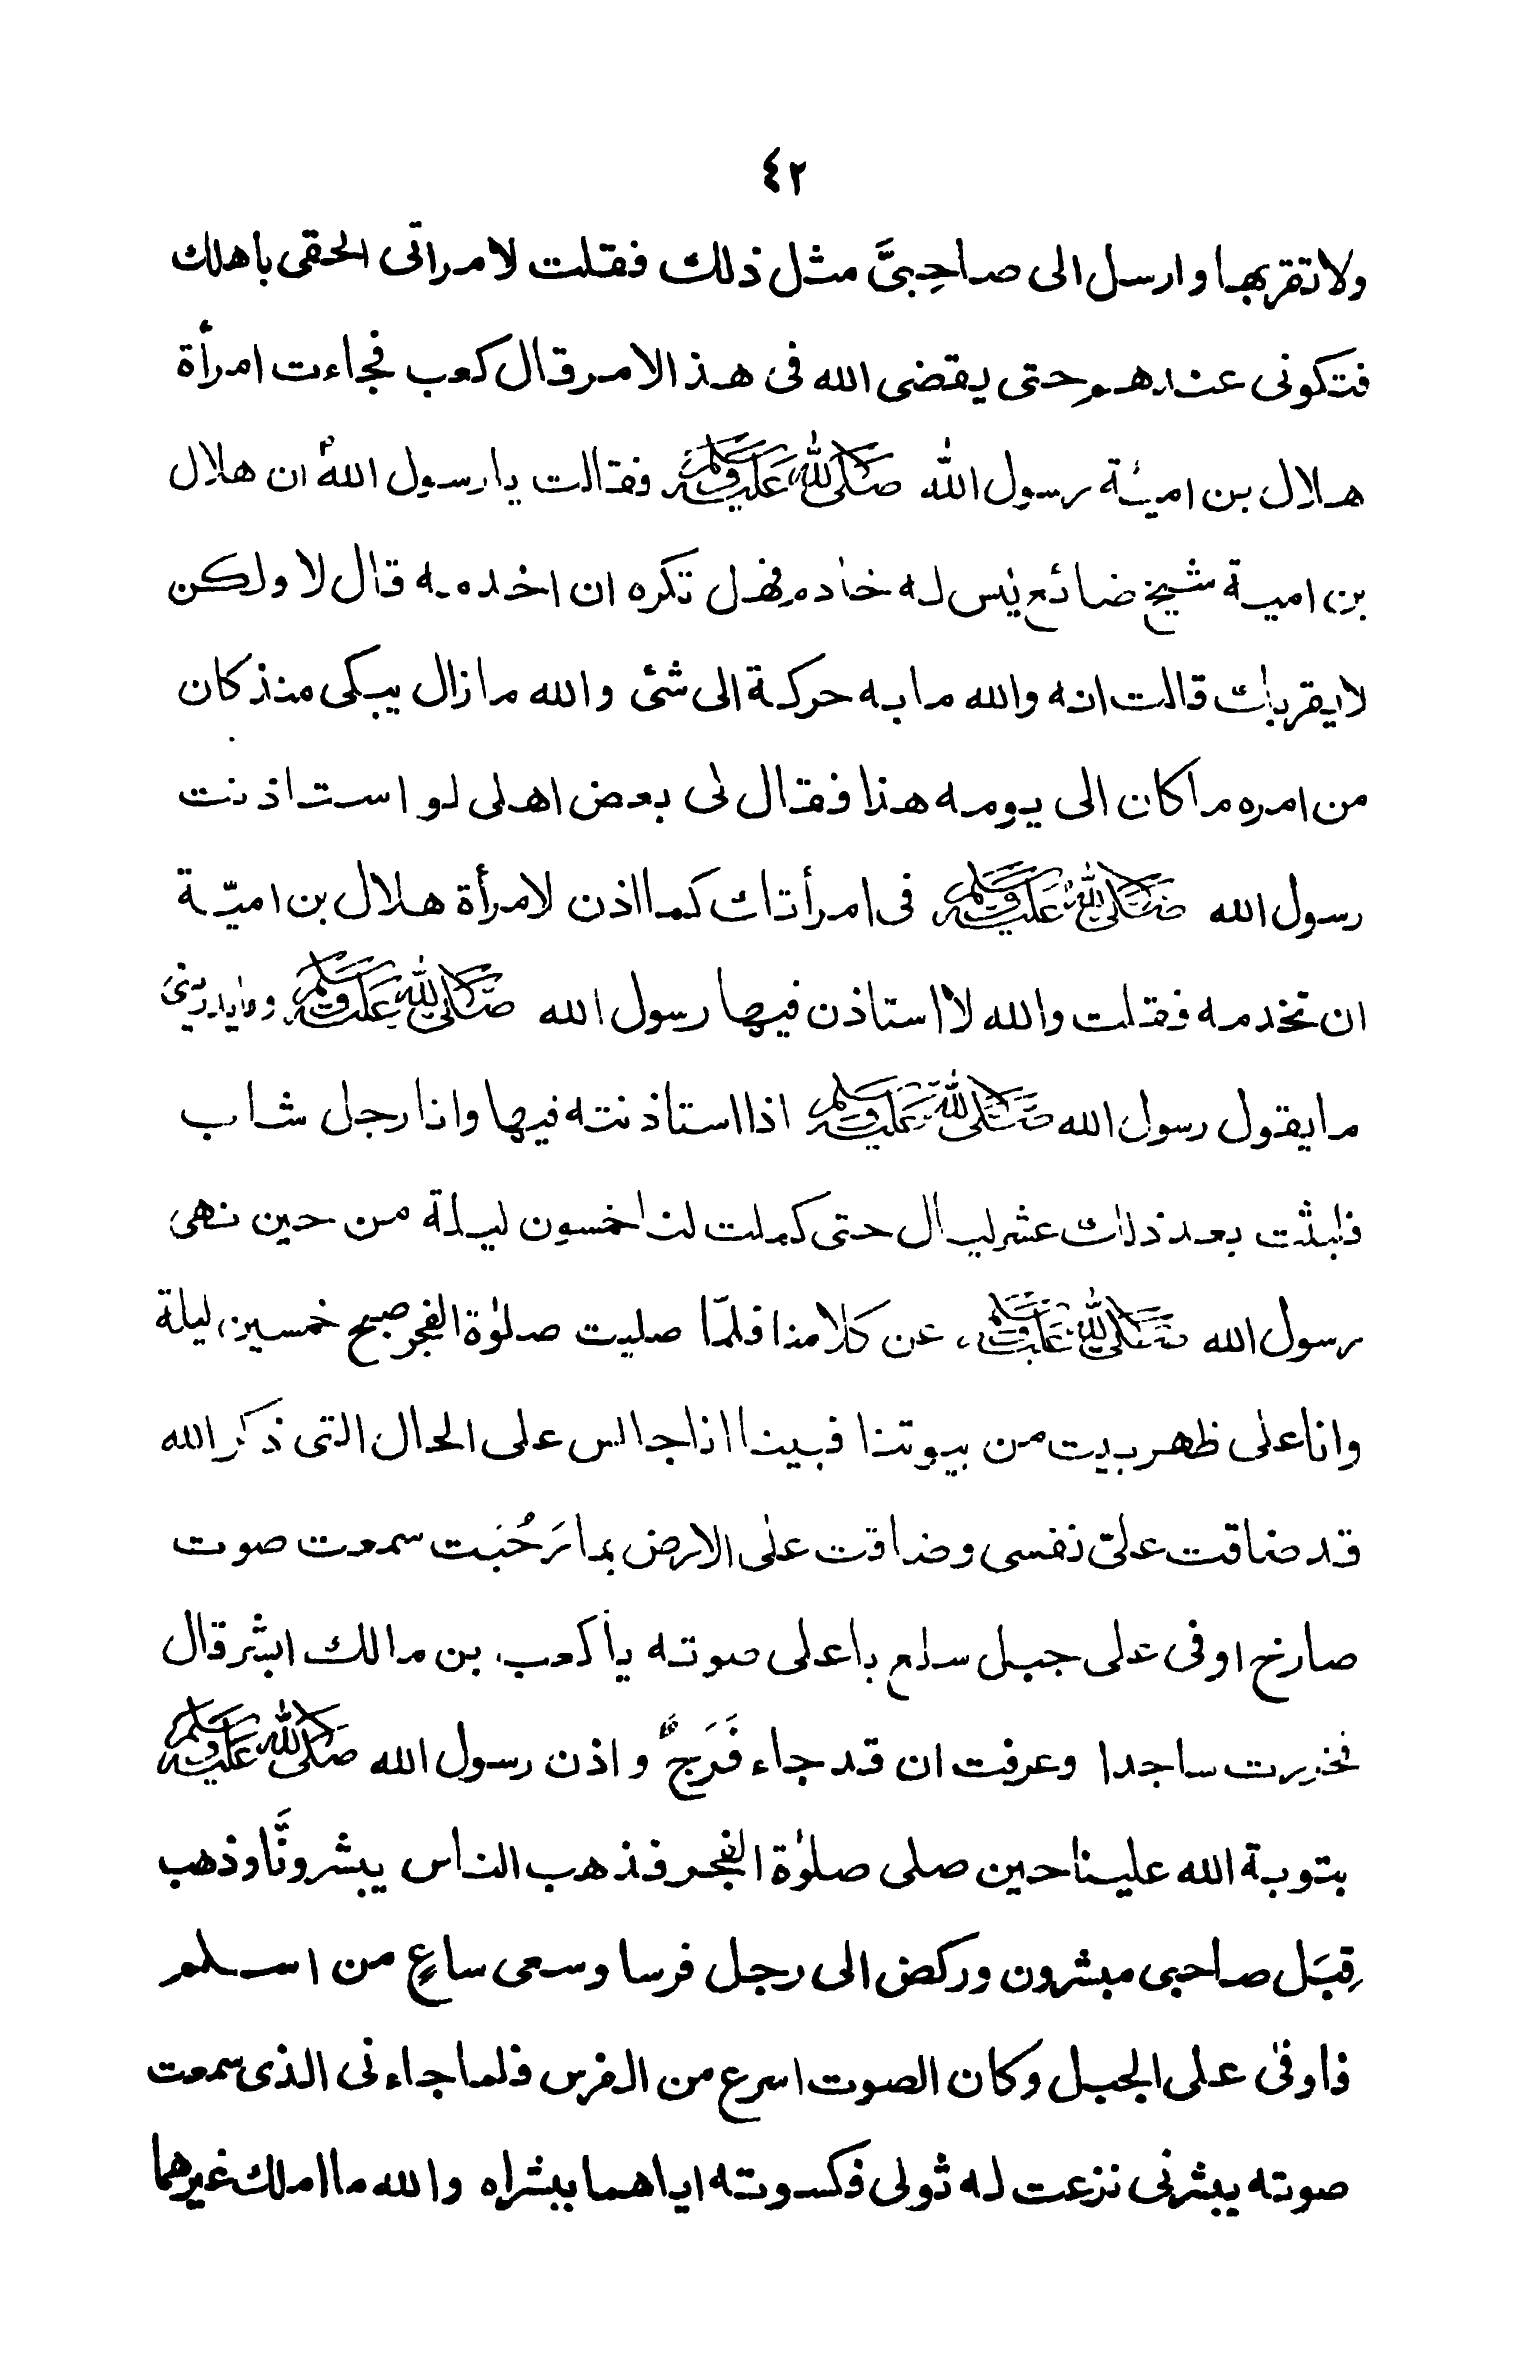 ٤٢
ولا تقربها وارسل الى صاحِبىَّ مثل ذلك فقلت لامراتى الحقى باهلك
فتكونى عندهم حتى يقضى الله فى هذا الامر قال كعب فجاءت امرأة
هلال بن امية رسول الله ﷺ فقالت يا رسول الله ان هلال
بن امية شيخ ضائع ليس له خادم فهل تكره ان اخدمه قال لا ولكن
لا يقربك قالت انه والله ما به حركة الى شئ والله ما زال يبكى منذ كان
من امره ما كان الى يومه هذا فقال لى بعض اهلى لو استاذنت
رسول الله ﷺ فى امرأتك كما اذن لامرأة هلال بن اميّة
ان تخدمه فقلت والله لا استاذن فيها رسول الله ﷺ وما يدرينى
ما يقول رسول الله ﷺ اذا استاذنته فيها وانا رجل شاب
فلبثت بعد ذلك عشر ليال حتى كملت لنا خمسون ليلة من حين نهى
رسول الله ﷺ عن كلامنا فلمّا صليت صلوٰة الفجر صبح خمسين ليلة
وانا على ظهر بيت من بيوتنا فبينا انا جالس على الحال التى ذكر الله
قد ضاقت علىّ نفسى وضاقت على الارض بما رَحُبَت سمعت صوت
صارخ اوفى على جبل سلع باعلى صوته يا كعب بن مالك ابشر قال
فخررت ساجدا وعرفت ان قد جاء فَرَجٌ واذن رسول الله ﷺ
بتوبة الله علينا حين صلى صلوٰة الفجر فذهب الناس يبشرونَّا وذهب
قِبَل صاحبى مبشرون وركض الى رجل فرسا وسعى ساعٍ من اسلم
فاوفى على الجبل وكان الصوت اسرع من الفرس فلما جاءنى الذى سمعت
صوته يبشرنى نزعت له ثوبى فكسوته اياهما ببشراه والله ما املك غيرهما